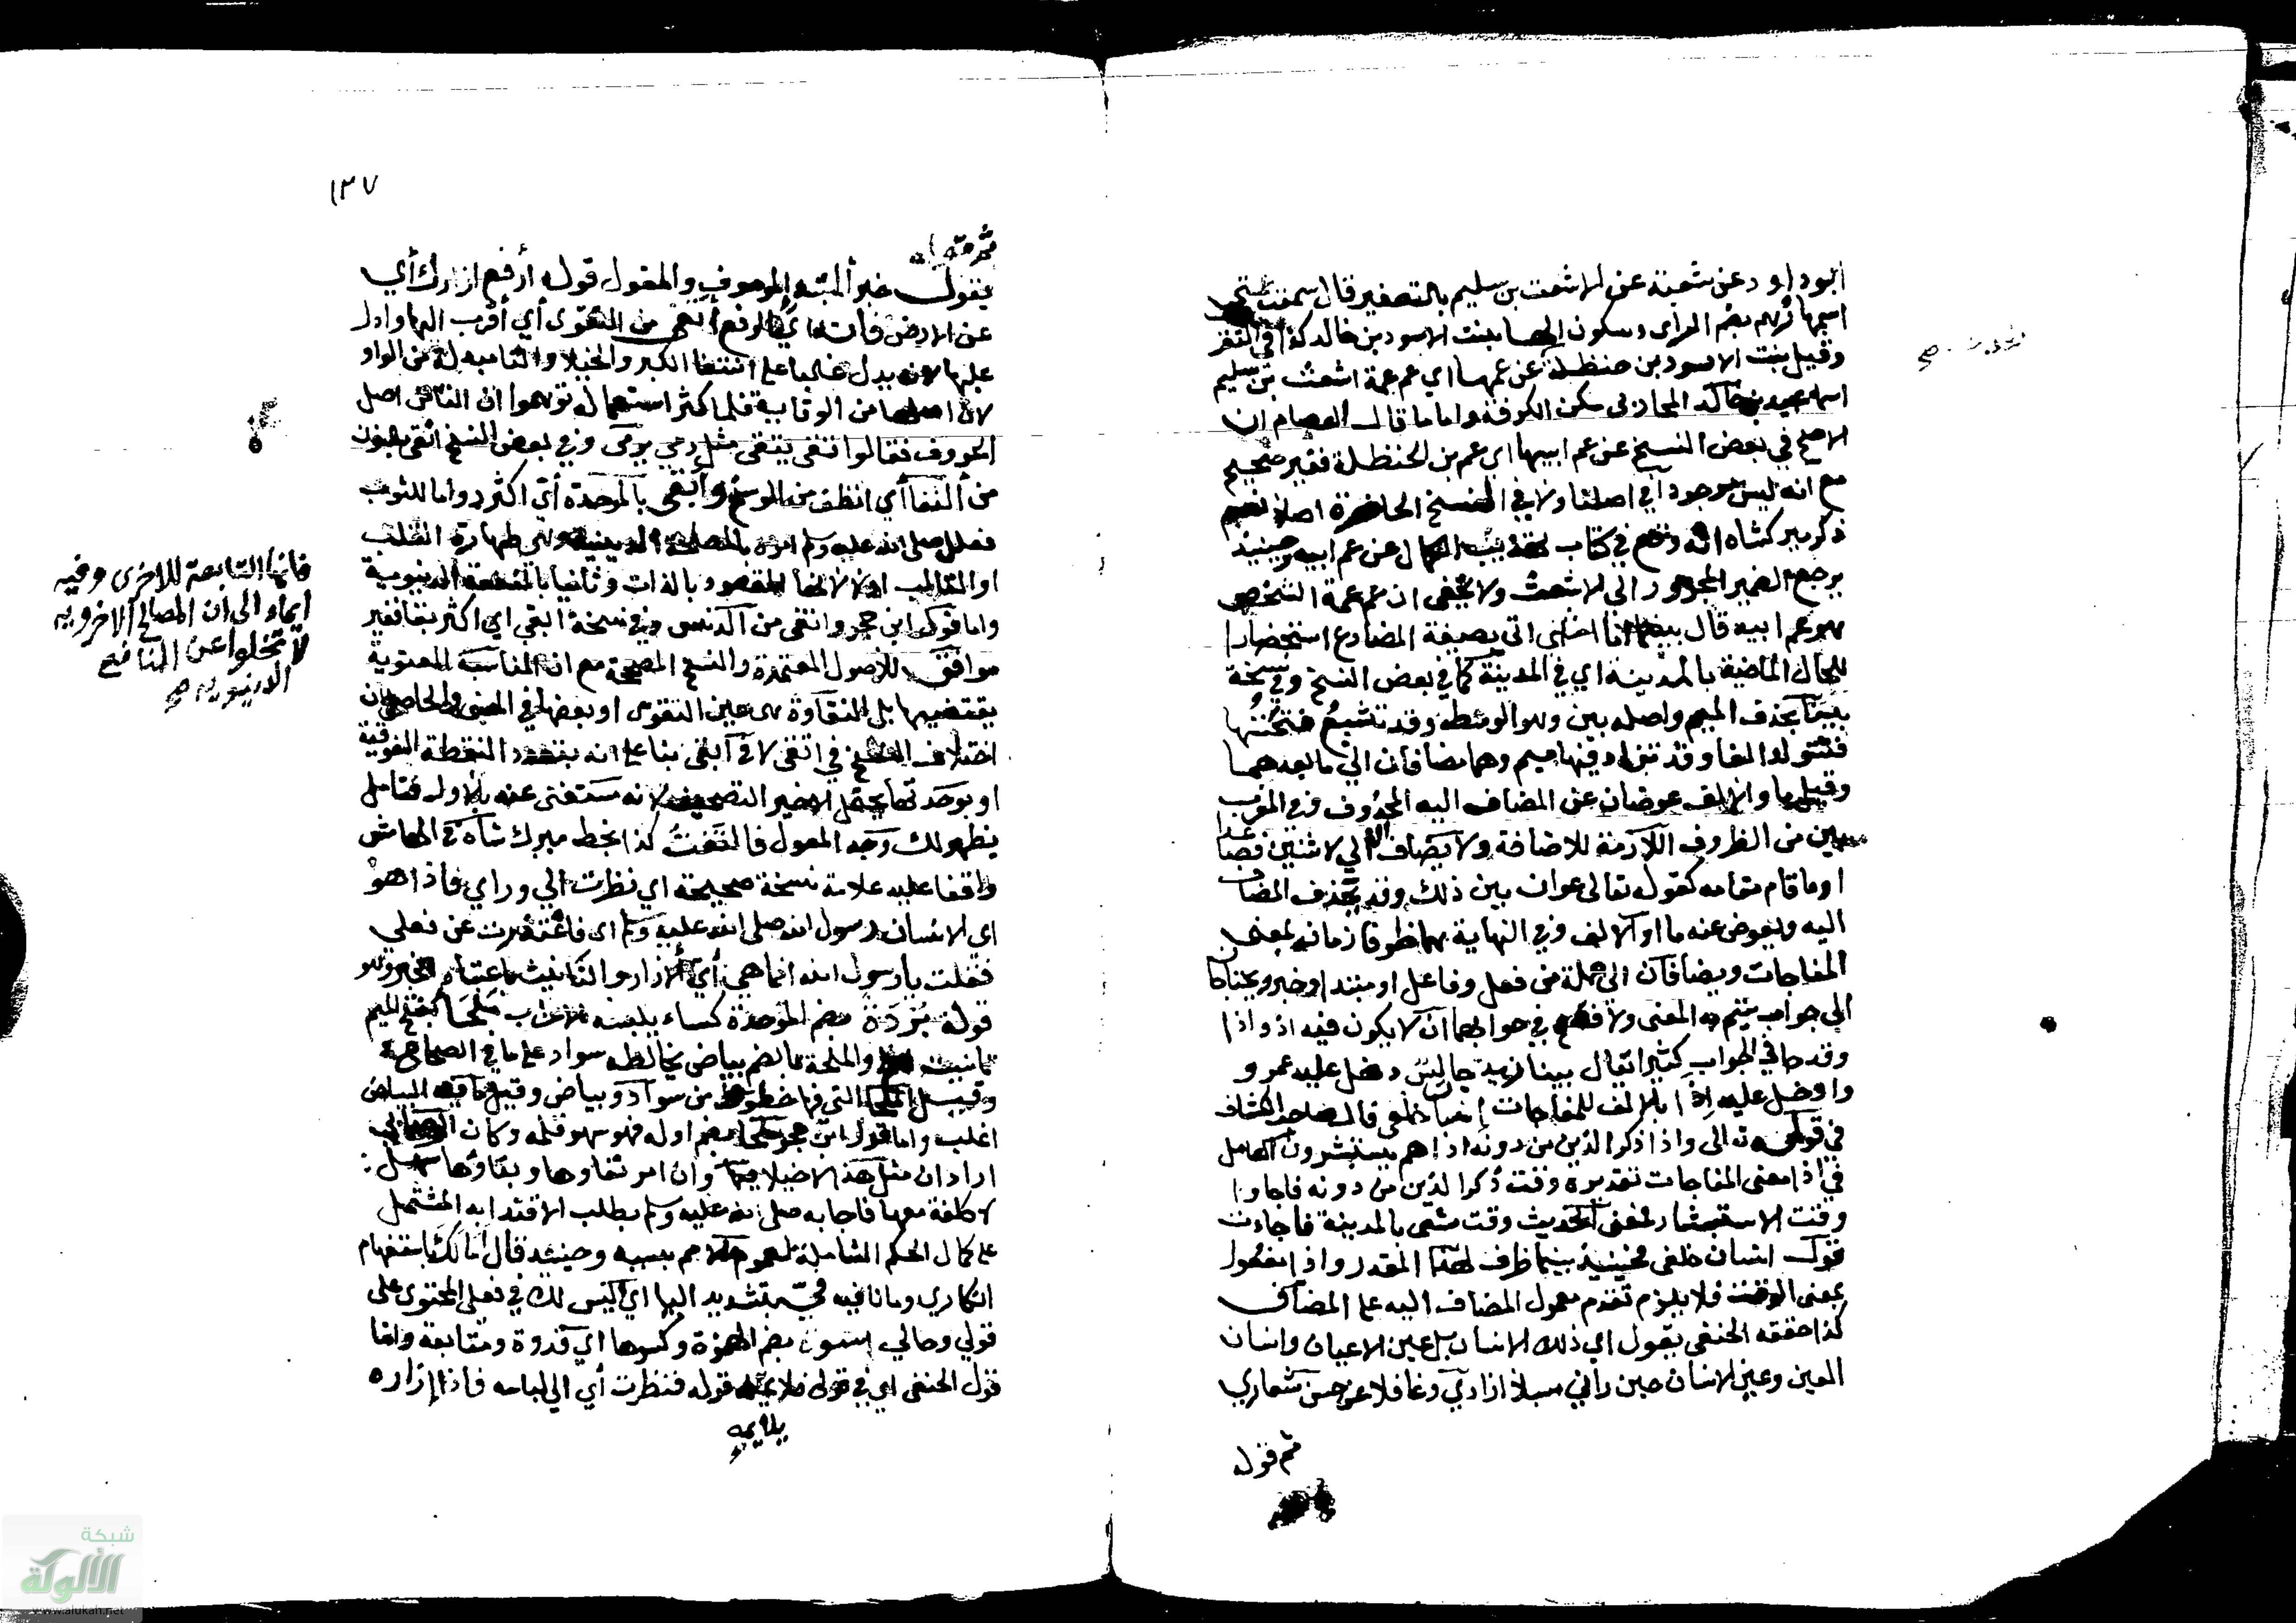 ابوداود عن شعبة عن الاشعث بن سليم بالتصغير قال سمعت عمتي
اسمها رهم بضم الراي وسكون الهاء بنت الاسود بن خالد كذا في
وقيل بنت الاسود بن حنظلة عن عمها اي عم عمة اشعث بن سليم
اسمه عبيد بن خالد المحاربي سكن الكوفة واما ما قال العصام ان
الاصح في بعض النسخ عن عم ابيها اي عم بن الحنظلة فغير صحيح
مع انه ليس موجودا في اصلنا ولا في النسخ الحاضرة اصلا نعم
ذكر ميركشاه انه وقع في كتاب تهذيب الكمال عن عم ابيه وحينئذ
يرجع الضمير المجرور الى الاشعث ولا يخفى ان عم عمة الشخص
هو عم ابيه قال بينما انا امشي اتى بصيغة المضارع استحضارا
للحال الماضية بالمدينة اي في المدينة كما في بعض النسخ وفي نسخة
بينا بحذف الميم واصله بين وهو الوسط وقد تشبع فتحتها
فتتولد الفا وقد تزاد فيها ميم وهما مضافان الى ما بعدهما
وقيل ما والالف عوضان عن المضاف اليه المحذوف وفي المغرب
بين من الظروف اللازمة للاضافة ولا يضاف الا الى لاثنين فصاعدا
او ما قام مقامه كقوله تعالى عوان بين ذلك وقد يحذف المضاف
اليه ويعوض عنه ما او الالف وفي النهاية هما ظرفا زمان بمعنى
المفاجات ويضافان الى جملة من فعل وفاعل او مبتدا وخبر ويحتاجان
الى جواب يتم به المعنى والافصح في جوابهما ان لا يكون فيه اذ واذا
وقد جا في الجواب كثيرا تقال بينا زيد جالس دخل عليه عمرو
واودخل عليه اذ بالالف للمفاجات انسان خلفي قال صاحب الكشاف
في قوله تعالى واذا ذكر الذين من دونه اذا هم يستبشرون العامل
في اذا معنى المفاجات تقديره وقت ذكر الذين من دونه فاجاوا
وقت الاستبشار لمعنى الحديث وقت مشي بالمدينة فاجات
قول انسان خلفي فحينئذ بينما ظرف لهذا المقدر واذا مفعول
بمعنى الوقت فلا يلزم تقدم معمول المضاف اليه على المضاف
كذا حققه الحنفي يقول اي ذلك الانسان بل عين الاعيان وانسان
العين وعين الانسان حين راني مسبلا ازاري وغافلا عن حسن شعاري
ثم قوله
١٣٧
يقول خبر المبتدا الموصوف والمقول قوله أرفع ازارك أي
عن الارض فانه اي الرفع اتقى من التقوى أي أقرب اليها وادل
عليها لانه يدل غالبا على انتفا الكبر والخيلا والتا مبدلة من الواو
لان اصلها من الوقاية فلما كثر استعماله توهموا ان التا من اصل
الحروف فقالوا تقى يتقى مثل رمى يرمى وفي بعض النسخ انقى بالنون
من النقا أي انظف من الوسخ وابقى بالموحدة أي اكثر دواما للثوب
فعلل صلى الله عليه وسلم امره بالمصلحة الدينية وهي طهارة القلب
او القالب اولا لانها المقصود بالذات وثانيا بالمنفعة الدنيوية
فانها التابعة للاخرى وفيه
ايماء الى ان المصالح الاخرويه
لا تخلوا عن المنافع
الدنيويه صح
واما قول ابن حجر وانقى من الدنس وفي نسخة ابقى اي اكثر بقا فغير
موافق للاصول المعتمدة والنسخ المصححة مع ان المناسبة المعنوية
يقتضيها بل النقاوة هي عين التقوى او بعضها في المعنى والحاصل ان
اختلاف النسخ في اتقى لا في ابقى بنا على انه بتعدد النقطة الفوقية
او توحدتها يحتمل الاخير التصحيف لانه مستغنى عنه بالاول فتامل
يظهر لك وجه المعول فالتفت كذا بخط ميرك شاه في الهامش
واقفا عليه علامة نسخة صحيحة اي نظرت الى وراي فاذا هو
اي الانسان رسول الله صلى الله عليه وسلم اي فاعتذرت عن فعلي
فقلت يا رسول الله انما هي أي الازار والتانيث باعتبار الخبر وهو
قوله بُرْدَة بضم الموحدة كساء يلبسه الاعراب مَلْحَا بفتح الميم
تانيث والملحة بالضم بياض يخالطه سواد على ما في الصحاح
وقيل الملحا التي فيها خطوط من سواد وبياض وقيل ما فيه البياض
اغلب واما قول ابن حجر ملحا بضم اوله فهو سهو قلم وكان الصحابي
اراد ان مثل هذا لاخيلا فيها وان امر نقاوها وبقاؤها سهل
لا كلفة معها فاجابه صلى الله عليه وسلم بطلب الاقتدا به المشتمل
على كمال الحكم الشاملة بسببه وحينئذ قال أمالك بااستفهام
انكاري وما نافيه فيّ بتشديد اليا اي اليس لك في فعلي المحتوى على
قولي وحالي اسوة بضم الهمزة وكسرها اي قدوة ومتابعة واما
قول الحنفي اي في قولي فلا يلايمه قوله فنظرت أي الى لباسه فاذا إزاره
شبكة
الألوكة
www.alukah.net